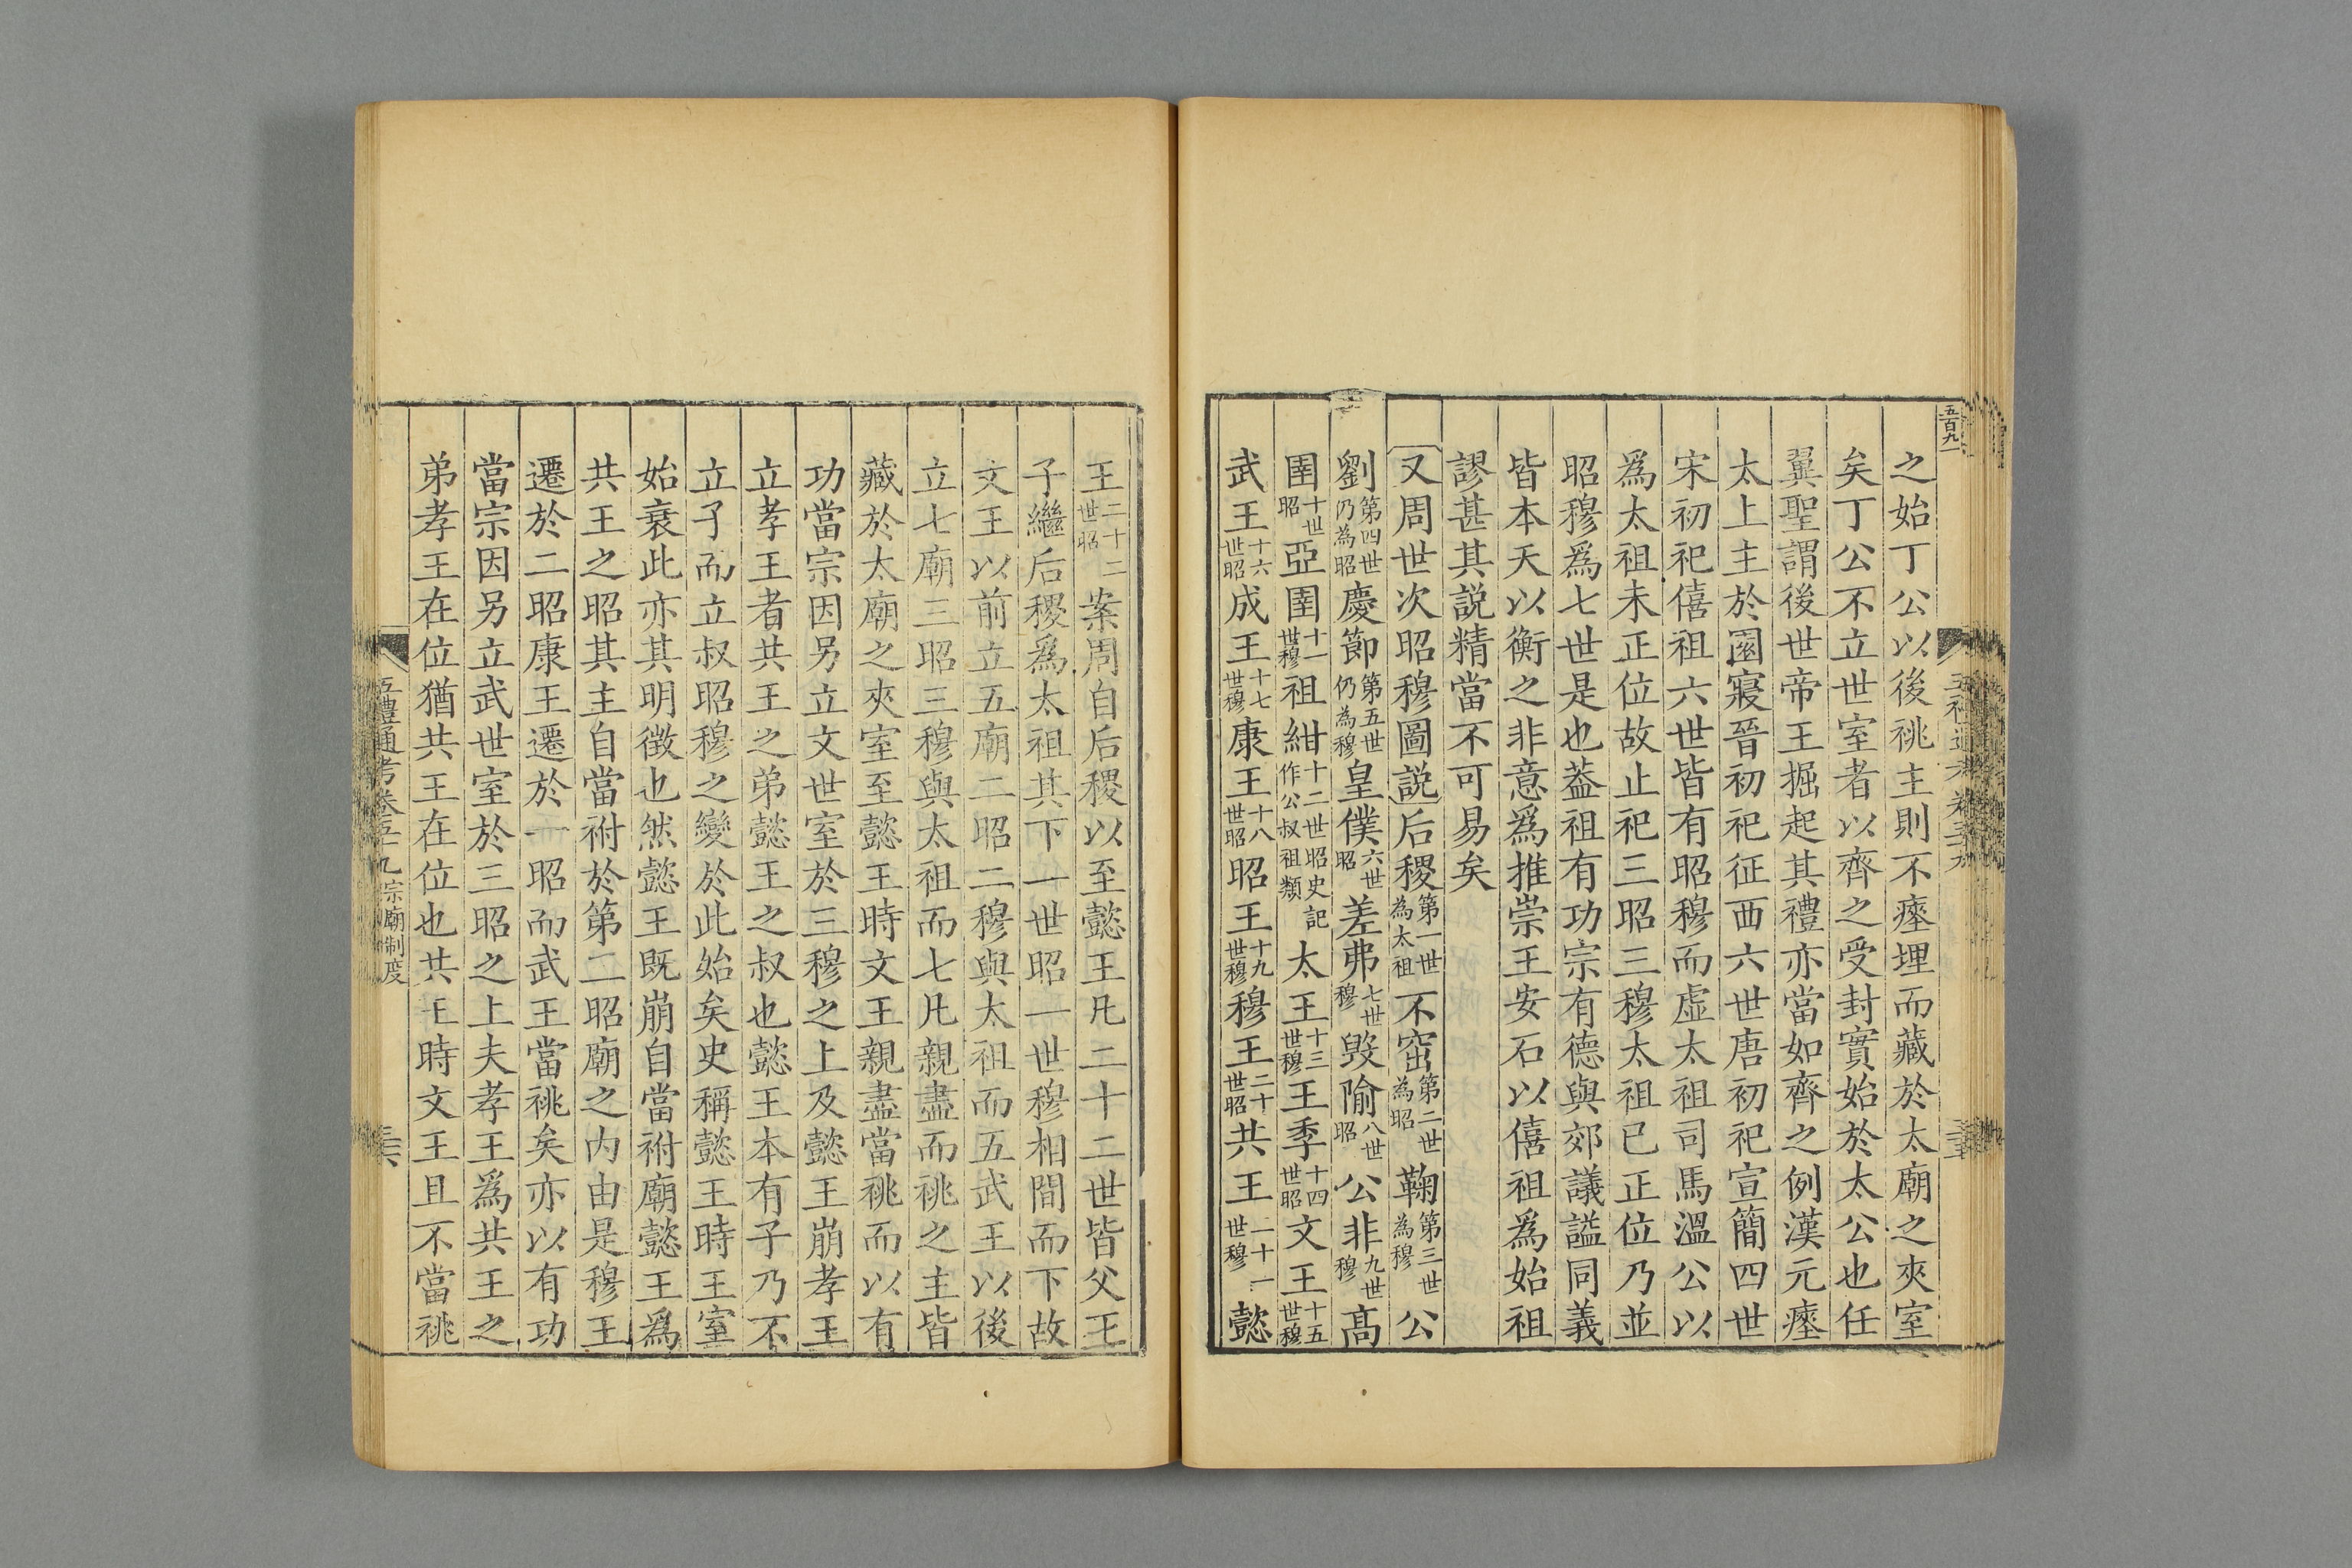 之始丁公以後祧主則不瘞埋而藏於太廟之夾室
矣丁公不立世室者以齊之受封實始於太公也任
翼聖謂後世帝王掘起其禮亦當如齊之例漢元瘞
太上主於園寢晉初祀征西六世唐初祀宣簡四世
宋初祀僖祖六世皆有昭穆而虛太祖司馬溫公以
爲太祖未正位故止祀三昭三穆太祖已正位乃並
昭穆爲七世是也葢祖有功宗有德與郊議謚同義
皆本天以衡之非意爲推崇王安石以僖祖爲始祖
謬甚其説精當不可易矣
又周世次昭穆圖説后稷第一世爲太祖不窋第二世為昭鞠第三世為穆公
劉第四世仍為昭慶節第五世仍為穆皇僕六世昭差弗七世穆毁隃八世昭公非九世穆高
圉十世昭亞圉十一世穆祖紺十二世昭史記作公叔祖類太王十三世穆王季十四世昭文王十五世穆
武王十六世昭成王十七世穆康王十八世昭昭王十九世穆穆王二十世昭共王二十一世穆懿
王二十二世昭案周自后稷以至懿王凡二十二世皆父王
子繼后稷爲太祖其下一世昭一世穆相間而下故
文王以前立五廟二昭二穆與太祖而五武王以後
立七廟三昭三穆與太祖而七凡親盡而祧之主皆
藏於太廟之夾室至懿王時文王親盡當祧而以有
功當宗因另立文世室於三穆之上及懿王崩孝王
立孝王者共王之弟懿王之叔也懿王本有子乃不
立子而立叔昭穆之變於此始矣史稱懿王時王室
始衰此亦其明徵也然懿王既崩自當祔廟懿王爲
共王之昭其主自當祔於第二昭廟之内由是穆王
遷於二昭康王遷於一昭而武王當祧矣亦以有功
當宗因另立武世室於三昭之上夫孝王爲共王之
弟孝王在位猶共王在位也共王時文王且不當祧
五禮通考卷五十九 宗廟制度